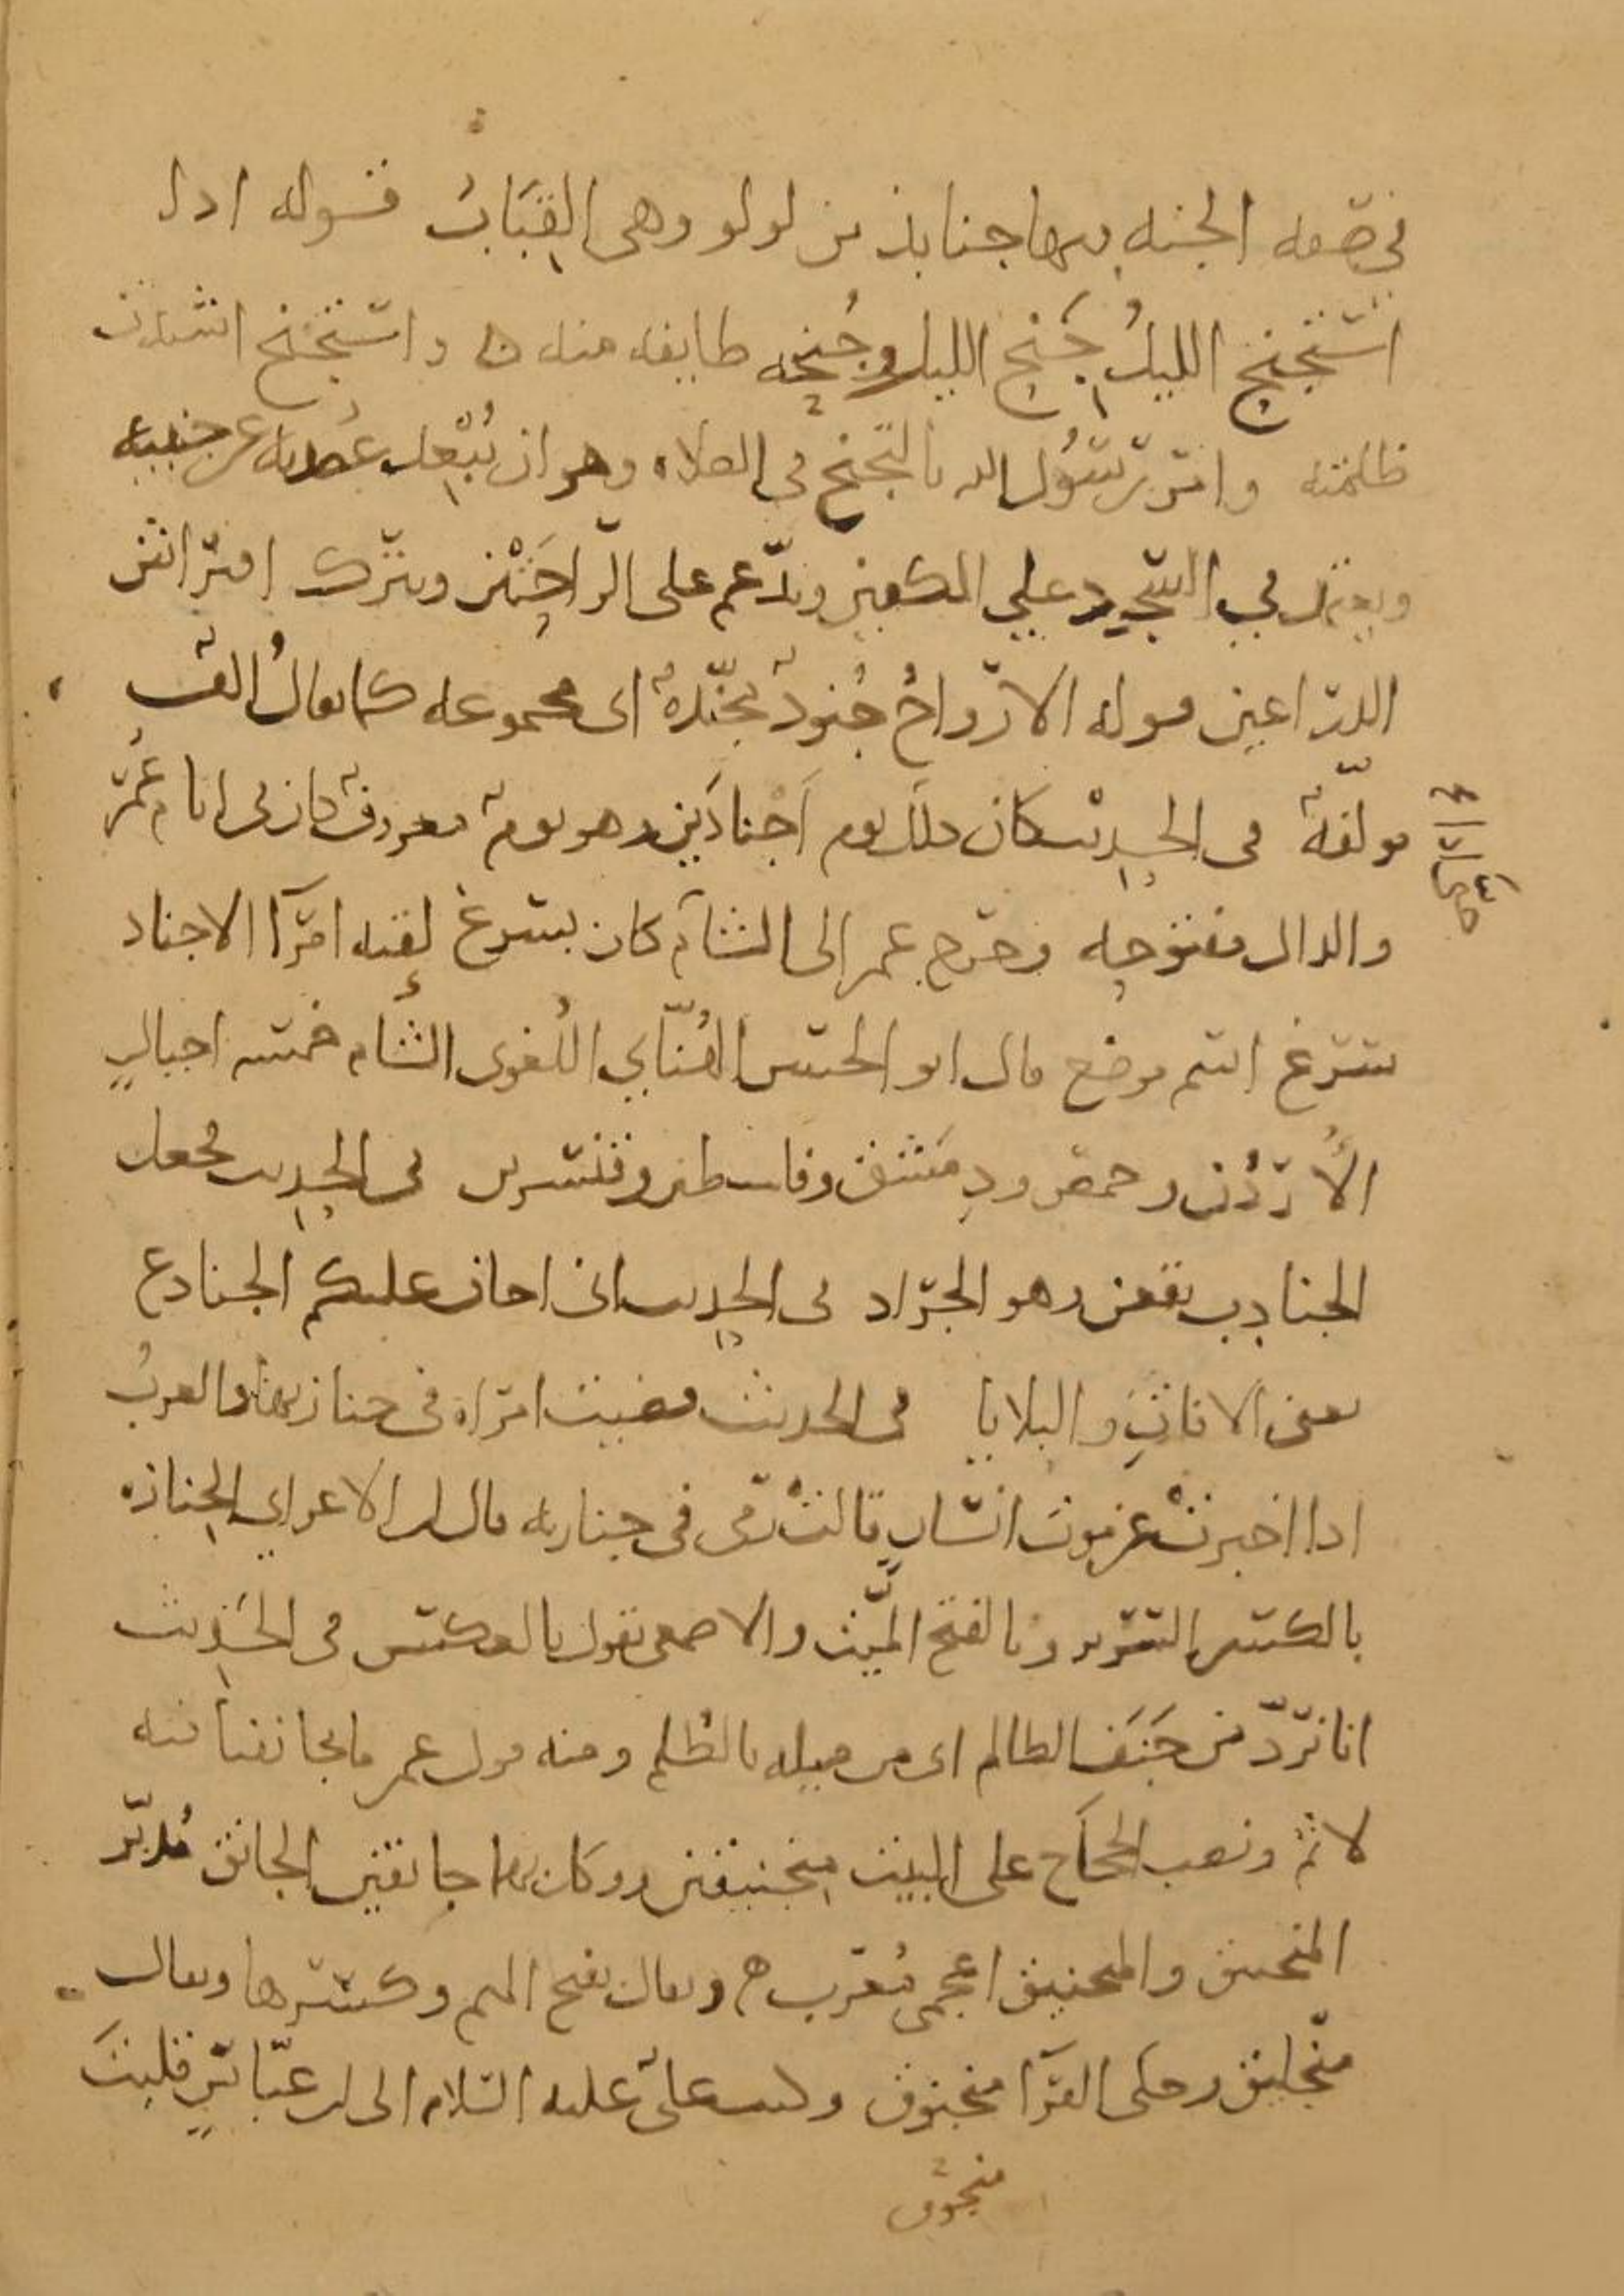 في صفه الجنه فيها جنابذ من لولو وهى القبَابُ قوله اذا
استجنح الليلُ جَنح الليل وجُنحه طايفه منه ه واستجنح اشتدت
ظلمته وامر رسُول الله بالتجنح فى الصلاه وهو ان يُبْعِد عضديه عن جنبيه
ويعتمد في السجود علي الكفين ويدّعم على الرّاحَتْين ويترك افتراش
الذراعين قوله الارواحُ جُنودٌ مجنّدةٌ اى مجموعه كما يقالُ الفٌ
مولّفةٌ فى الحديث كان ذلك يوم اَجنادَين وهو يومٌ معروفٌ كان فى ايام عُمَر
والدال مفتوحه وخرج عمر الى الشام كان بسرغ لقيه امرآ الاجناد
سرغ اسم موضع قال ابو الحسن الهُنّاىي اللُغوى الشام خمسه اجبالٍ
الأُردُن وحمص ودِمَشق وفلسطين وقنسرين فى الحديث فجعل
الجنادِب يقعن وهو الجراد فى الحديث انى اخاف عليكم الجنادع
يعنى الافاتِ والبلايا فى الحديث فضربت امراه فى جنازتها والعربُ
اذا اخبرتْ عن موت انسانٍ قالتْ رمى فى جنازته قال ابن الاعرابي الجنازه
بالكسر السرير وبالفتح الميّت والاصمعى يقول بالعكس فى الحَديث
انا نردّ من جَنَف الظالم اى من ميله بالظلم ومنه قول عمر ما تجانفنا فيه
لاثم ونصب الحجاج على البيت منجنيقين ووكل بهما جانقين الجانق مُدبّر
المنجنيق والمنجنيق اعجمى مُعرب ه ويقال بفتح الميم وكسرها ويقال
منجليق وحكى الفرآ منجنوق وكتب علىٌ عليه السلام الى ابن عبّاسٍ قلبتَ
منجوق